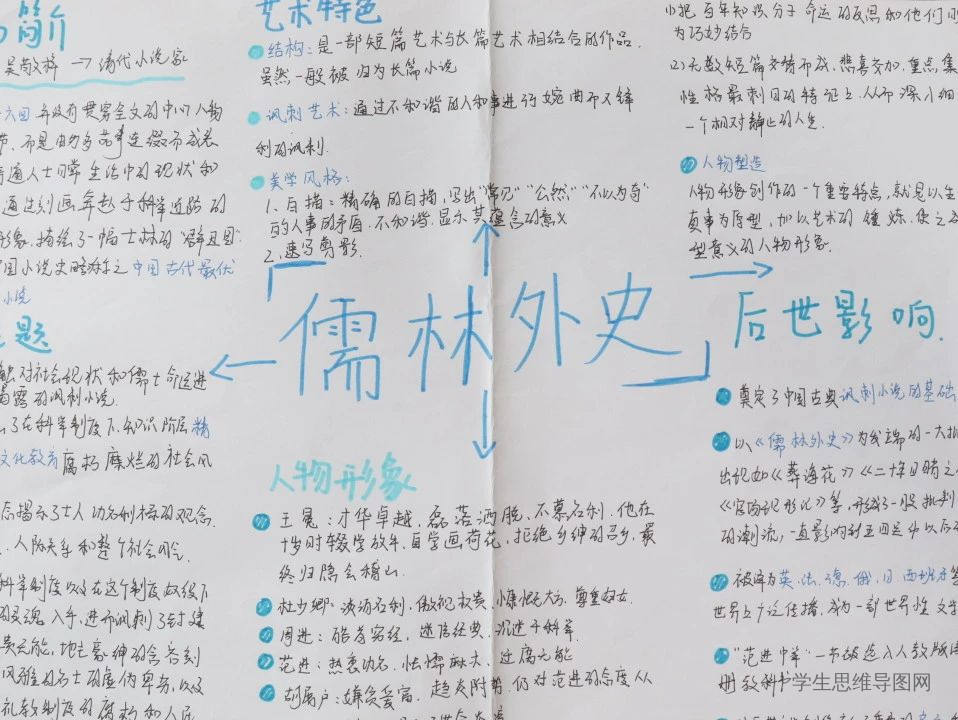 简介
吴敬梓 → 清代小说家
六回 并没有贯穿全文的中心人物
节,而是由多故事连缀而成长
普通人士日常生活中的现状和
通过刻画奔赴于科举道路的
形象,描绘了一幅士林的“群丑图”
国小说史略称之中国古代最优
小说
主题
触对社会现状和儒士命运进
揭露的讽刺小说
了在科举制度下,知识阶层精
文化教育腐朽糜烂的社会风
态揭示了士人功名利禄的观念
人际关系和整个社会风气
科举制度以及在这个制度奴役下
的灵魂入手,进而讽刺了封建
贵无能,地主豪绅的贪吝刻
风雅的名士的虚伪卑劣,以及
礼教制度的腐朽和人民
艺术特色
结构:是一部短篇艺术与长篇艺术相结合的作品
虽然一般被归为长篇小说
讽刺艺术:通过不和谐的人和事进行婉曲而又锋
利的讽刺.
美学风格:
1.白描:精确的白描,写出“常见”“公然”“不以为奇”
的人事的矛盾.不和谐.显示其蕴含的意义
2.速写剪影.
「儒林外史」
人物形象
王冕:才华卓越,磊落洒脱,不慕名利.他在
十岁时辍学放牛,自学画荷花,拒绝乡绅的召乡,最
终归隐会稽山.
杜少卿:淡泊名利,傲视权贵,慷慨大方,尊重妇女.
周进:酷考穷经,迷信经典,沉迷于科举
范进:热衷功名,怯懦麻木,迂腐无能
胡屠户:嫌贫爱富,趋炎附势.仍对范进的态度从
小把百年知识分子命运的反思和他们
为巧妙结合
(2)无数短篇交替而成,悲喜交加,重点集
性格最刺目的特征上.从而深入细
一个相对静止的人生.
人物塑造
人物形象创作的一个重要特点,就是以生
真事为原型,加以艺术的锤炼,使之
型意义的人物形象.
后世影响.
奠定了中国古典讽刺小说的基础
以《儒林外史》为发端的一大批
出现如《孽海花》《二十年目睹之
《官场现形记》等,形成了一股批判
的潮流,一直影响到五四运动以后
被译为英.法.德.俄.日.西班牙等
世界上广泛传播,成为一部世界性文学
“范进中举”一书被选入人教版语
册教科
中学生思维导图网